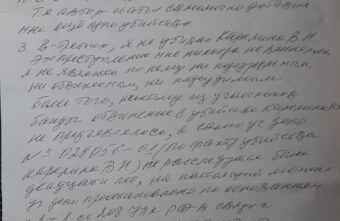 Т.е. автор статьи самолично добавил
мне ещё одно убийство
3. В-третьих, я не убивал Каферина В.Н
Это преступление мне никогда не вменялось
я не являюсь по нему ни подозреваемым,
ни обвиняемым, ни подсудимым.
Более того, никому из участников
банды обвинение в убийстве
не предъявлялось, а само уг. дело
№ 029056-01 (по факту убийства
В.Н) не расследуется более
двадцати лет, на настоящий момент
уг. дело приостановлено по основаниям
ст. 208 УПК РФ в связи с